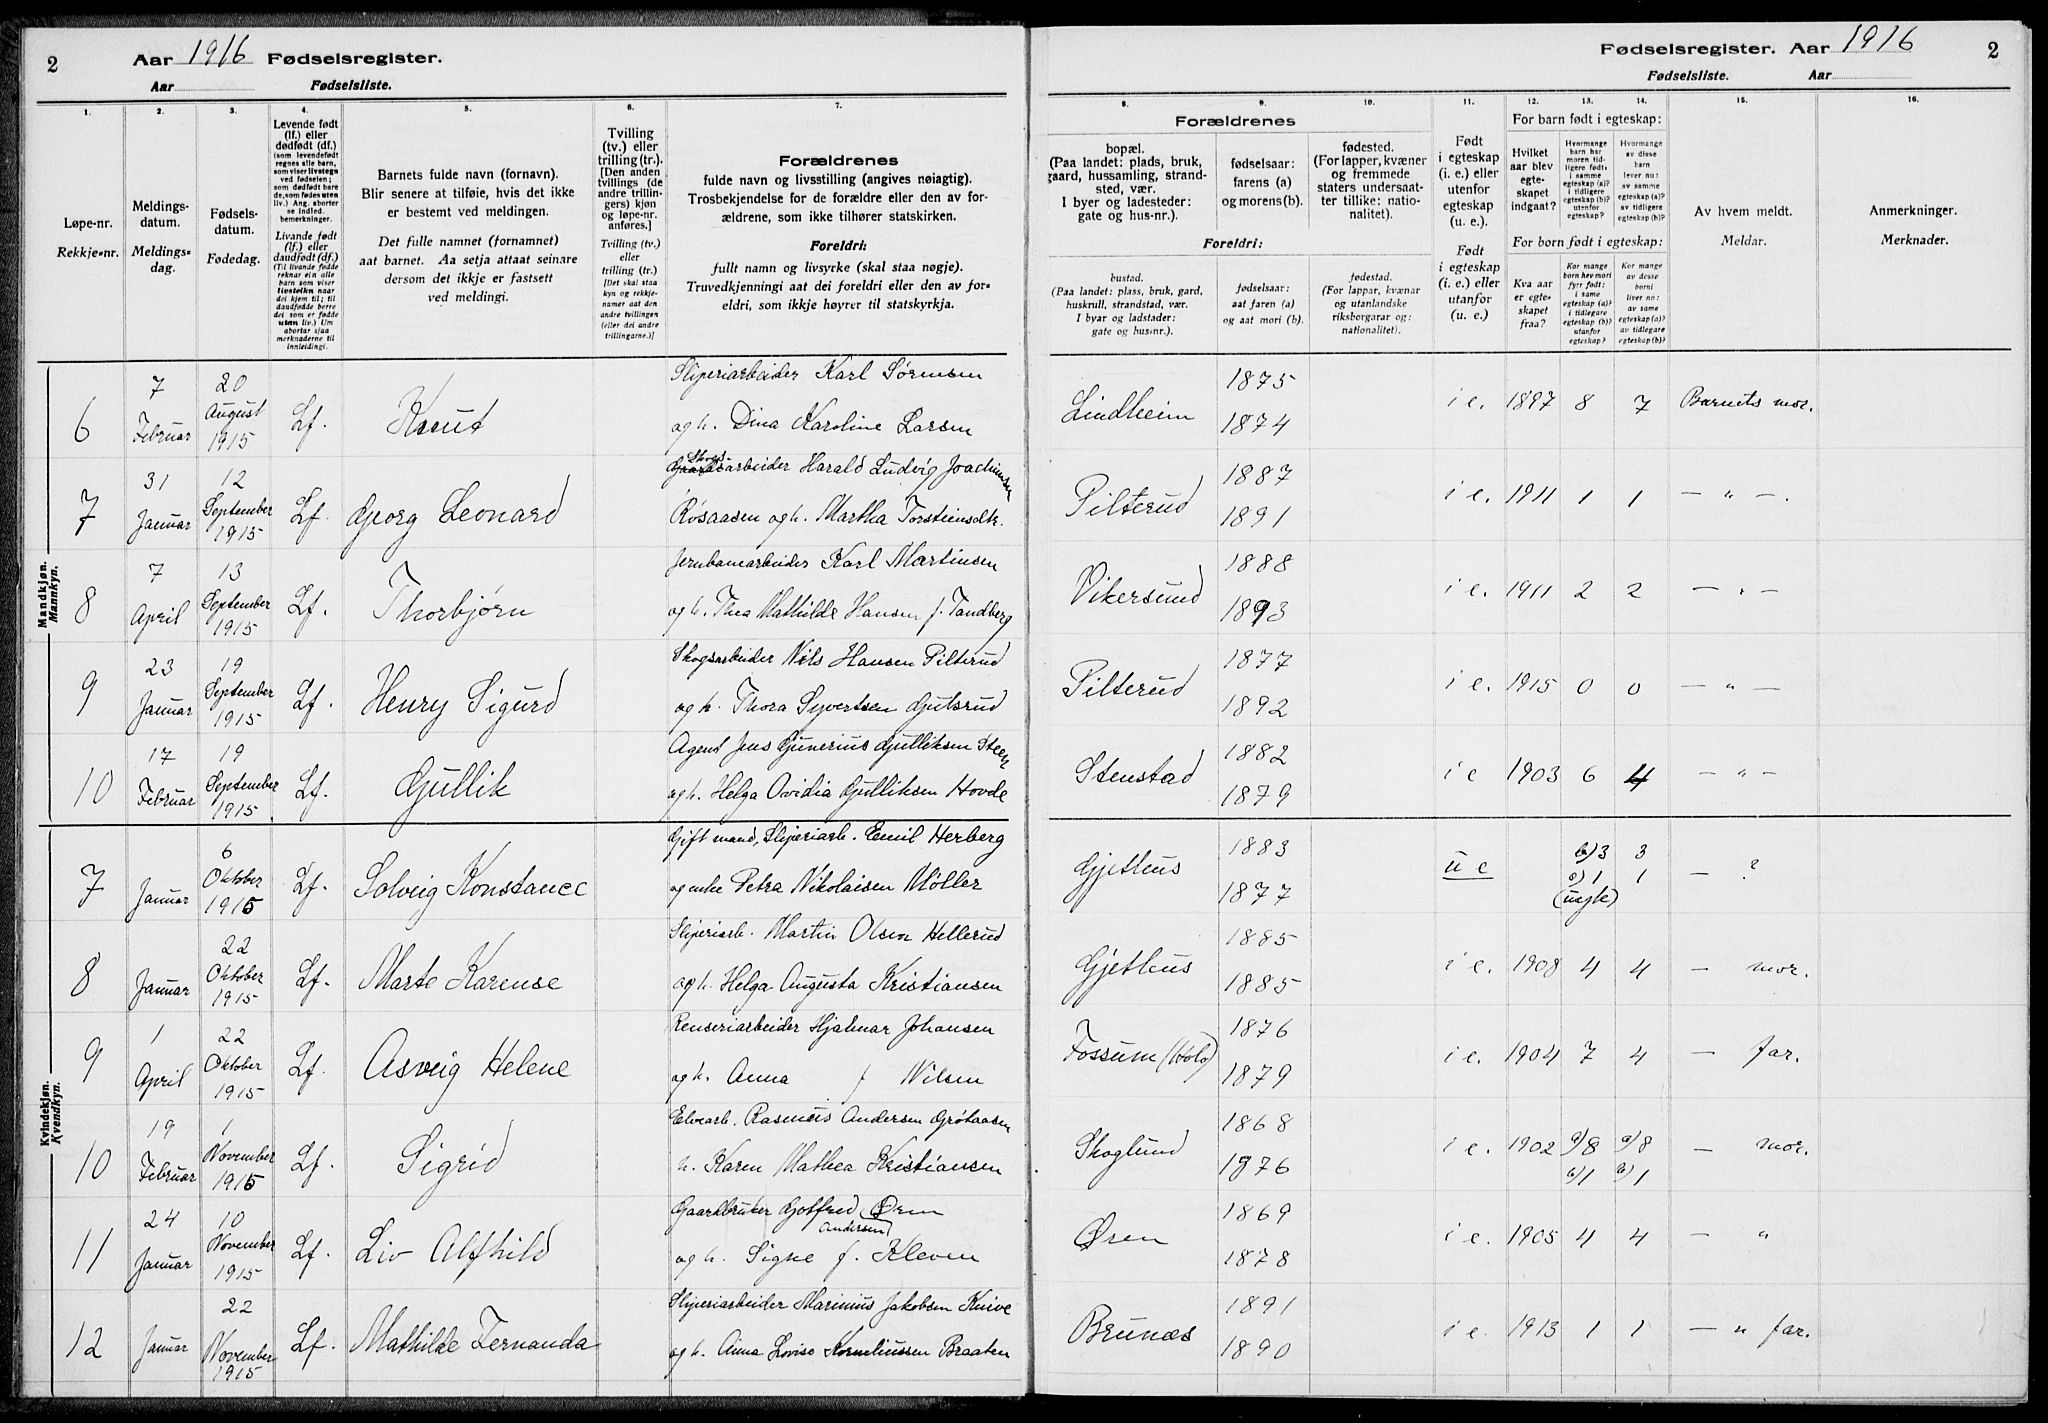 2 Aar 1916 Fødselsregister.
Aar Fødselsliste.
Fødselsregister. Aar 1916 2
Fødselsliste. Aar
1. 2. 3. 4. 5. 6. 7. 8. 9. 10. 11. 12. 13. 14. 15. 16.
Løpe-nr.
Rekkje-nr.
Meldings-
datum.
Meldings-
dag.
Fødsels-
datum.
Fødedag.
Levende født
(lf.) eller
dødfødt (df.)
(som levendefødt
regnes alle barn,
som viser livstegn
ved fødselen;
som dødfødt bare
de, som fødes uten
liv.) Ang. aborter
se indled.
bemerkninger.
Livande født
(lf.) eller
daudfødt (df.)
(Til livande fødde
reknar ein alle
barn som viser
livsteikn naar
dei kjem til; til
daudfødde berre
dei som er fødde
utan liv.) Um
abortar sjaa
merknaderne til
innleidingi.
Barnets fulde navn (fornavn).
Blir senere at tilføie, hvis det ikke
er bestemt ved meldingen.
Det fulle namnet (fornamnet)
aat barnet. Aa setja attaat seinare
dersom det ikkje er fastsett
ved meldingi.
Tvilling
(tv.) eller
trilling (tr.).
[Den anden
tvillings (de
andre trillin-
gers) kjøn
og løpe-nr.
anføres.]
Tvilling (tv.)
eller
trilling (tr.)
[Det skal staa
kyn og rekkje-
numer aat den
andre tvillingen
(eller dei andre
trillingarne.)]
Forældrenes
fulde navn og livsstilling (angives nøiagtig).
Trosbekjendelse for de forældre eller den av for-
ældrene, som ikke tilhører statskirken.
Foreldri:
fullt namn og livsyrke (skal staa nøgje).
Truvedkjenningi aat dei foreldri eller den av for-
eldri, som ikkje høyrer til statskyrkja.
Forældrenes
bopæl.
(Paa landet: plads, bruk,
gaard, hussamling, strand-
sted, vær.
I byer og ladesteder:
gate og hus-nr.).
fødselsaar:
farens (a)
og morens (b).
fødested.
(For lapper, kvæner
og fremmede
staters undersaat-
ter tillike: natio-
nalitet).
Foreldri:
bustad.
(Paa landet: plass, bruk, gard,
huskrull, strandstad, vær.
I byar og ladstader:
gate og hus-nr.).
fødselsaar:
aat faren (a)
og aat mori (b).
fødestad.
(For lappar, kvænar
og utanlandske
riksborgarar og:
nationalitet).
Født
i egteskap
(i. e.) eller
utenfor
egteskap
(u. e.).
Født
i egteskap
(i. e.) eller
utanfor
(u. e.)
For barn født i egteskap:
Hvilket
aar blev
egte-
skapet
indgaat?
Hvormange
barn har
moren tid-
ligere født: i
samme
egteskap (a)?
i tidligere
egteskap (b)?
utenfor
egteskap?
Hvormange
av disse
barn
lever nu:
av samme
egteskap (a)?
av tidligere
egteskap (b)?
For born født i egteskap:
Kva aar
er egte-
skapet
fraa?
Kor mange
born hev mori
fyrr født:
i same
egteskap (a)?
i tidlegare
egteskap (b)?
utanfor
egteskap?
Kor mange
av desse
borni
liver no:
av same
egteskap (a)?
av tidlegare
egteskap (b)?
Av hvem meldt.
Meldar.
Anmerkninger.
Merknader.
Mandkjøn.
Mannkyn.
7 20 Sliperiarbeider Karl Sørensen 1875
6 Februar August 1915 Lf. Knut og h. Dina Karoline Larsen Lindheim 1874 i e. 1897 8 7 Barnets mor.
31 12 Skogsarbeider Harald Ludvig Joachimsen 1887
7 Januar September 1915 Lf. Georg Leonard Rosaasen og h. Martha Torstensdtr. Pilterud 1891 i e. 1911 1 1 — " —.
7 13 Jernbanearbeider Karl Martinsen 1888
8 April September 1915 Lf. Thorbjørn og h. Thea Mathilde Hansen f. Tandberg Vikersund 1893 i e. 1911 2 2 — " —
23 19 Skogsarbeider Nils Hansen Pilterud 1877
9 Januar September 1915 Lf. Henry Sigurd og h. Thora Syvertsen Gutsrud Pilterud 1892 i e. 1915 0 0 — " —
17 19 Agent Jens Gunerius Gulliksen Steen 1882
10 Februar September 1915. Lf. Gullik og h. Helga Ovidia Gulliksen Hovde Stenstad 1879 i e 1903 6 4 — " —
Kvindekjøn.
Kvendkyn.
6 Gift mand, Sliperiarb. Emil Herberg 1883 b) 3 3
7 Januar Oktober 1915 Lf. Solveig Konstance og enke Petra Nikolaisen Møller Gjethus 1877 u e a) 1 1 — ?
(uegte)
22 Sliperiarb. Martin Olsen Hellerud 1885
8 Januar Oktober 1915 Lf. Marte Karense og h. Helga Augusta Kristiansen Gjethus 1885 i e. 1908 4 4 — mor.
1 22 Renseriarbeider Hjalmar Johansen 1876
9 April Oktober 1915 Lf. Asveig Helene og h. Anna f Nilsen Fossum (Holo) 1879 i e. 1904 7 4 — far.
19 1 Elvearb. Rasmus Andersen Grøtaasen 1868
10 Februar November 1915 Lf. Sigrid h. Karen Mathea Kristiansen Skoglund 1876 i e. 1902 a) 8 a) 8 — mor.
b) 1 b) 1
24 10 Gaardbruker Gotfred Andersen Øren 1869
11 Januar November 1915 Lf. Liv Alfhild og h. Signe f. Kleven Øren 1878 i e. 1905 4 4 — "
22 Sliperiarbeider Marinius Jakobsen Knive 1891
12 Januar November 1915 Lf. Mathilde Fernanda og h. Anna Lovise Korneliussen Braaten Brunæs 1890 i e. 1913 1 1 — " far.